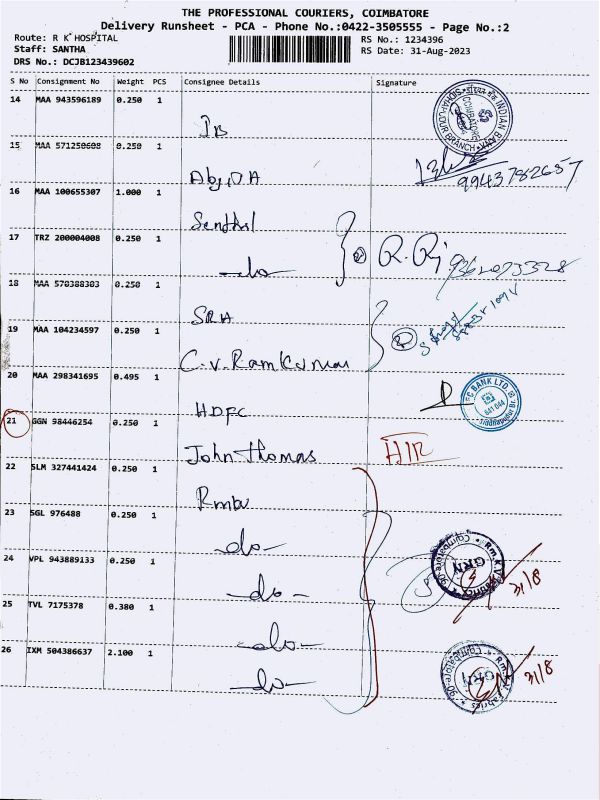 THE PROFESSIONAL COURIERS, COIMBATORE
Delivery Runsheet - PCA - Phone No.:0422-3505555 - Page No.:2
Route: R K HOSPITAL
RS No.: 1234396
Staff: SANTHA
RS Date: 31-Aug-2023
DRS No.: DCJB123439602
S No Consignment No Weight PCS Consignee Details Signature
14 MAA 943596189 0.250 1
IB
15 MAA 571250608 0.250 1
9943782657
16 MAA 100655307 1.000 1
Senthil
17 TRZ 200004008 0.250 1
-do-
R. Rj
18 MAA 570388303 0.250 1
SRA
19 MAA 104234597 0.250 1
C.V. Ram Kumar
20 MAA 298341695 0.495 1
HDFC
21 GGN 98446254 0.250 1
John Thomas
22 SLM 327441424 0.250 1
23 SGL 976488 0.250 1
-do-
24 VPL 943889133 0.250 1
-do-
31/8
25 TVL 7175378 0.380 1
-do-
26 IXM 504386637 2.100 1
-do-
31/8
INDIAN BANK
COIMBATORE
BRANCH
BANK LTD.
GRN
Coimbatore
GRN
Fabrics